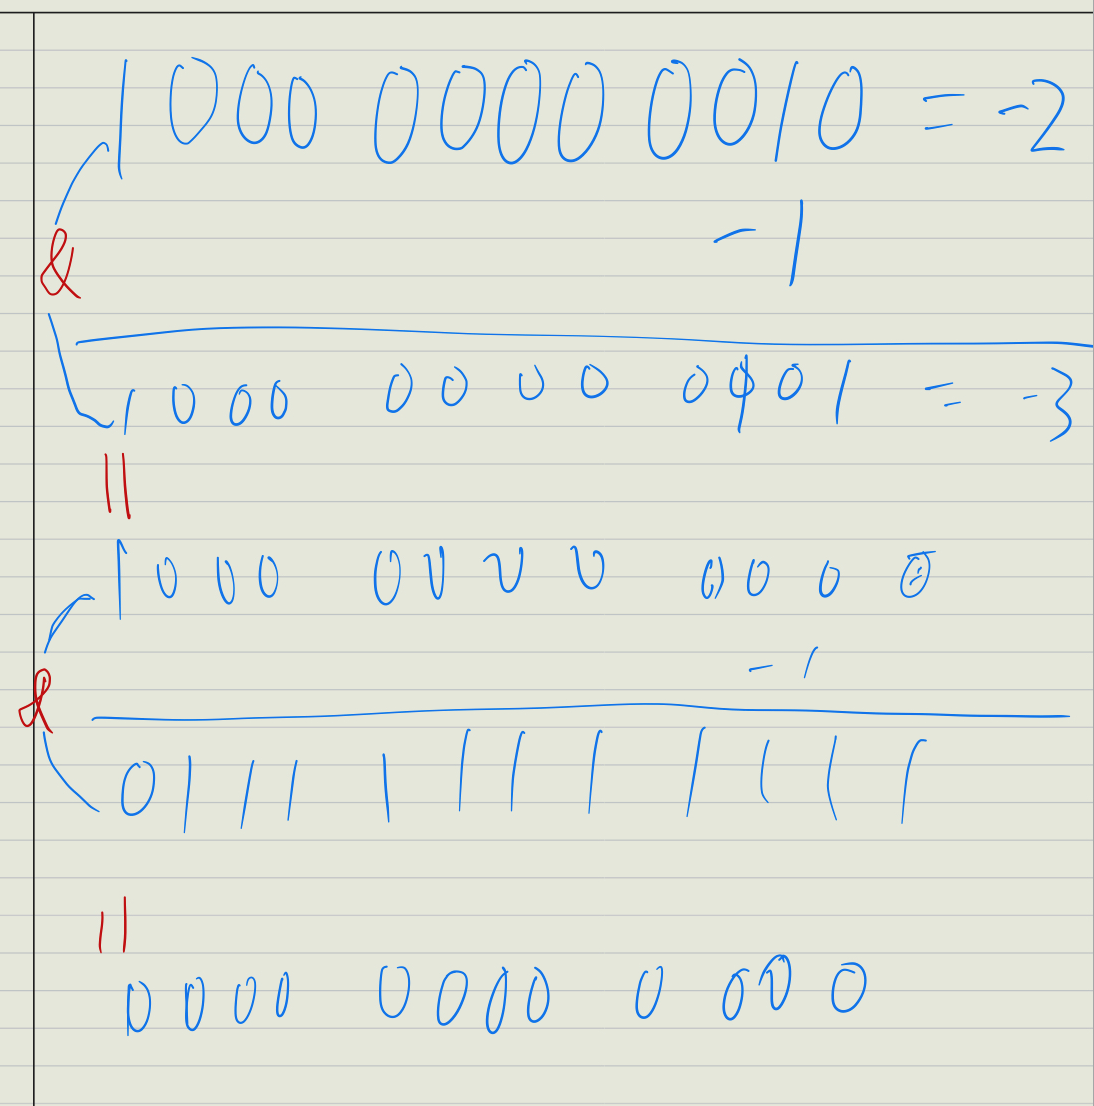 1000 0000 0010 = -2
& -1
1000 0000 0001 = -3
||
1000 0000 0000
& -1
0111 1111 1111
||
0000 0000 0000